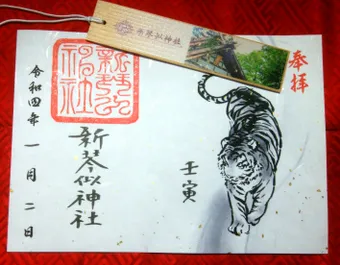 新琴似神社
奉拝
壬寅
新琴似神社
令和四年一月二日